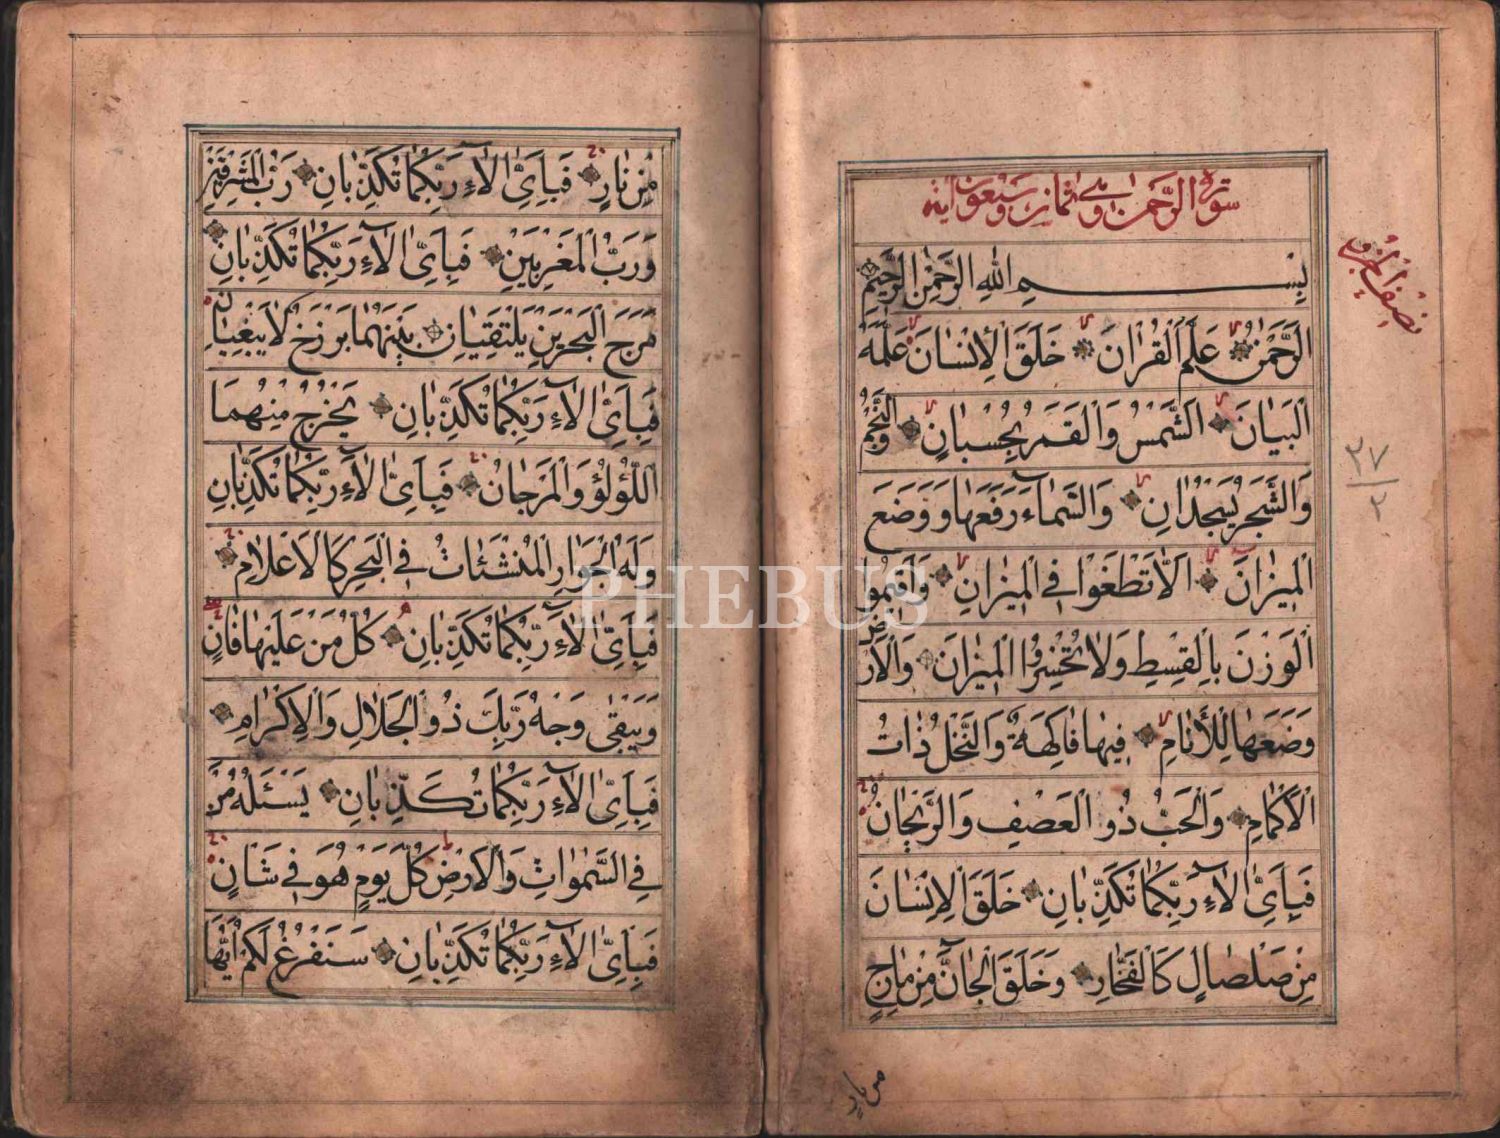 سورة الرحمن وهي ثمان وسبعون اية
بِسْمِ اللهِ الرَّحْمٰنِ الرَّحِيمِ
الرَّحْمٰنُ عَلَّمَ الْقُرْاٰنَ خَلَقَ الْاِنْسَانَ عَلَّمَهُ
الْبَيَانَ اَلشَّمْسُ وَالْقَمَرُ بِحُسْبَانٍ وَالنَّجْمُ
وَالشَّجَرُ يَسْجُدَانِ وَالسَّمَاءَ رَفَعَهَا وَوَضَعَ
الْمِيزَانَ اَلَّا تَطْغَوْا فِي الْمِيزَانِ وَاَقِيمُوا
الْوَزْنَ بِالْقِسْطِ وَلَا تُخْسِرُوا الْمِيزَانَ وَالْاَرْضَ
وَضَعَهَا لِلْاَنَامِ فِيهَا فَاكِهَةٌ وَالنَّخْلُ ذَاتُ
الْاَكْمَامِ وَالْحَبُّ ذُو الْعَصْفِ وَالرَّيْحَانُ
فَبِاَيِّ اٰلَاءِ رَبِّكُمَا تُكَذِّبَانِ خَلَقَ الْاِنْسَانَ
مِنْ صَلْصَالٍ كَالْفَخَّارِ وَخَلَقَ الْجَانَّ مِنْ مَارِجٍ
نصف الجزو
٢٧
٢
من نار
مِنْ نَارٍ فَبِاَيِّ اٰلَاءِ رَبِّكُمَا تُكَذِّبَانِ رَبُّ الْمَشْرِقَيْنِ
وَرَبُّ الْمَغْرِبَيْنِ فَبِاَيِّ اٰلَاءِ رَبِّكُمَا تُكَذِّبَانِ
مَرَجَ الْبَحْرَيْنِ يَلْتَقِيَانِ بَيْنَهُمَا بَرْزَخٌ لَا يَبْغِيَانِ
فَبِاَيِّ اٰلَاءِ رَبِّكُمَا تُكَذِّبَانِ يَخْرُجُ مِنْهُمَا
اللُّؤْلُؤُ وَالْمَرْجَانُ فَبِاَيِّ اٰلَاءِ رَبِّكُمَا تُكَذِّبَانِ
وَلَهُ الْجَوَارِ الْمُنْشَئَاتُ فِي الْبَحْرِ كَالْاَعْلَامِ
فَبِاَيِّ اٰلَاءِ رَبِّكُمَا تُكَذِّبَانِ كُلُّ مَنْ عَلَيْهَا فَانٍ
وَيَبْقٰى وَجْهُ رَبِّكَ ذُو الْجَلَالِ وَالْاِكْرَامِ
فَبِاَيِّ اٰلَاءِ رَبِّكُمَا تُكَذِّبَانِ يَسْئَلُهُ مَنْ
فِي السَّمٰوَاتِ وَالْاَرْضِ كُلَّ يَوْمٍ هُوَ فِي شَانٍ
فَبِاَيِّ اٰلَاءِ رَبِّكُمَا تُكَذِّبَانِ سَنَفْرُغُ لَكُمْ اَيُّهَا
PHEBUS